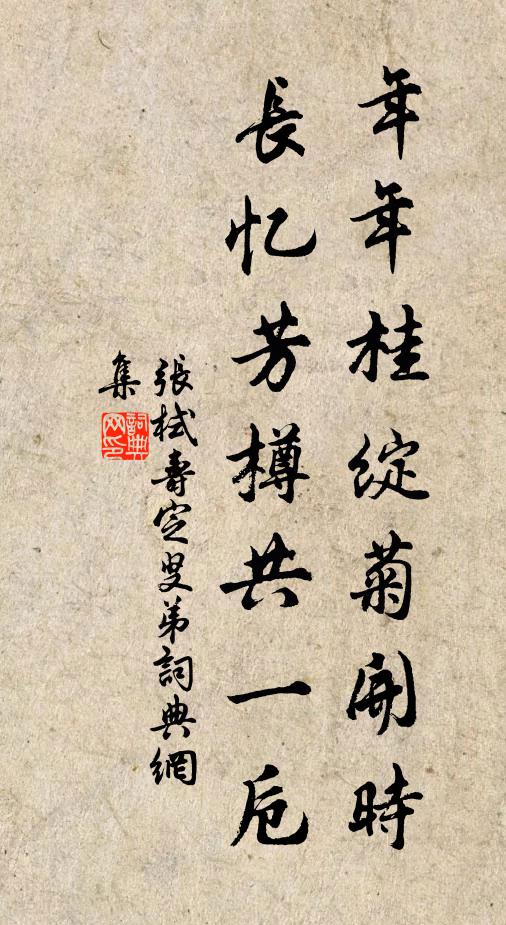 年年桂綻菊開時
長忆芳樽共一卮
張栻壽定叟弟詞典網
集
詞典
网印